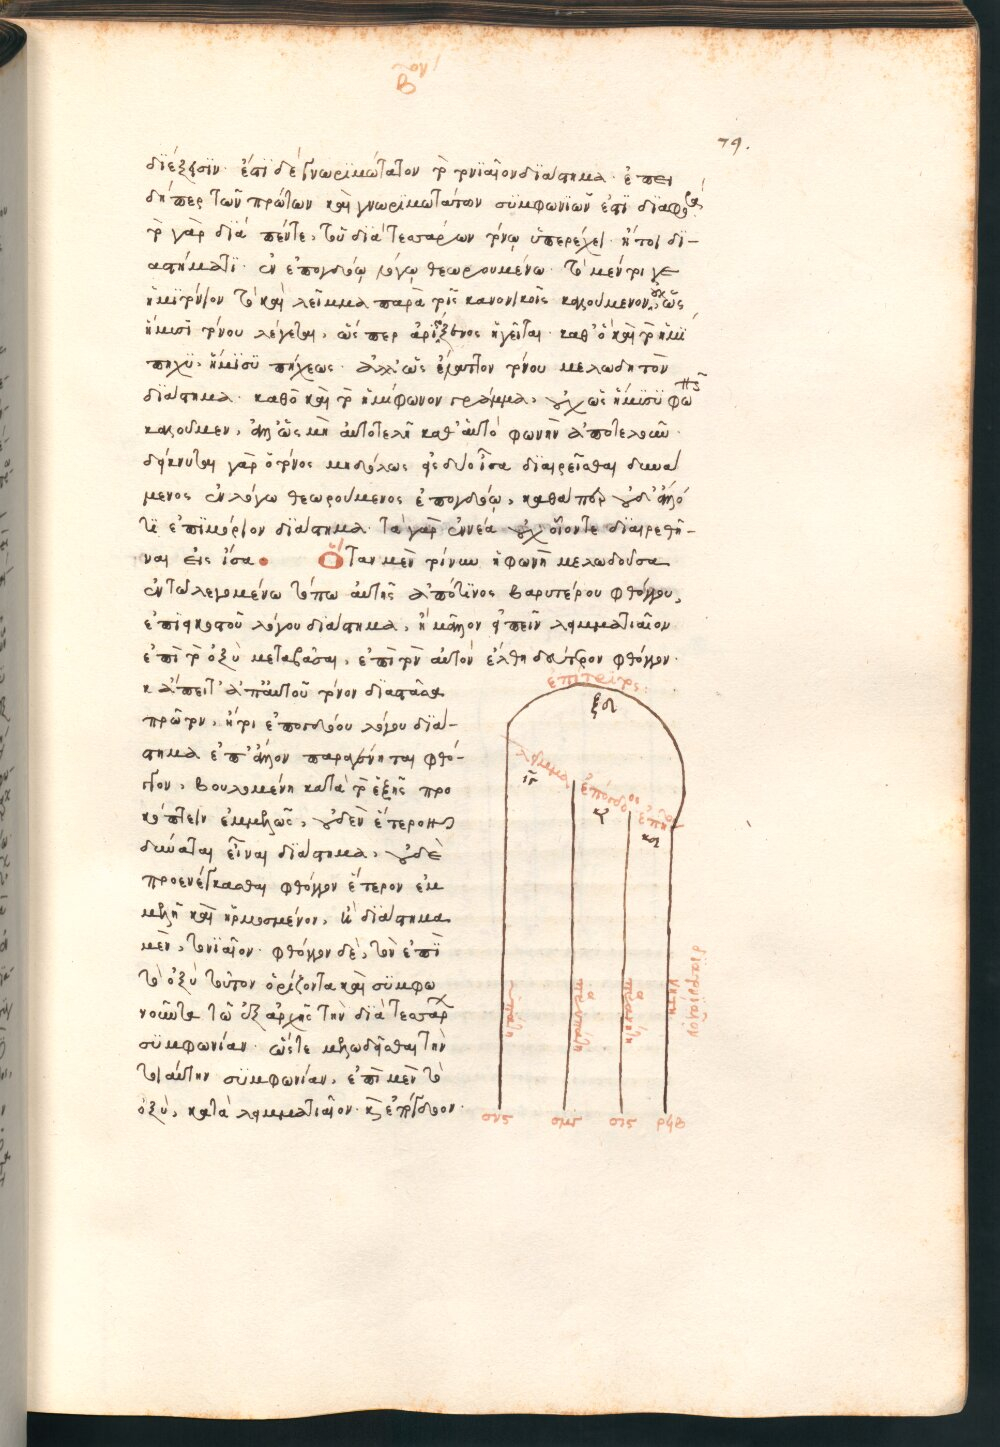 79.
διέξεισιν. ἐπὶ δὲ γνωριμώτατον τὸ τονιαῖον διάστημα. ἐπει
δήπερ τῶν πρώτων καὶ γνωριμωτάτων συμφωνιῶν ἐστὶ διαφορά.
τὸ γὰρ διὰ πέντε, τοῦ διὰ τεσσάρων τόνῳ ὑπερέχει. ἤτοι δι-
αστήματι ἐν ἐπογδόῳ λόγῳ θεωρουμένῳ. τὸ μέντοι γε
ἡμιτόνιον τὸ καὶ λεῖμμα παρὰ τοῖς κανονικοῖς καλούμενον, οὐχ ὡς
ἥμισυ τόνου λέγεται, ὥσπερ ἀριστόξενος ἡγεῖται. καθ' ὃ καὶ τὸ ἡμι
πήχυ, ἥμισυ πήχεως. ἀλλ' ὡς ἔλαττον τόνου μελωδητὸν
διάστημα. καθὸ καὶ τὸ ἡμίφωνον γράμμα, οὐχ ὡς ἥμισυ φωνῆς
καλοῦμεν, ἀλλ' ὡς μὴ αὐτοτελῆ καθ' αὑτὸ φωνὴν ἀποτελοῦν.
δείκνυται γὰρ ὁ τόνος μηδόλως εἰς δύο ἴσα διαιρεῖσθαι δυνά
μενος ἐν λόγω θεωρούμενος ἐπογδόῳ, καθάπερ οὐδ' ἄλλο
τι ἐπιμόριον διάστημα. τὰ γὰρ ἐννέα οὐχ οἷόντε διαιρεθῆ-
ναι εἰς ἴσα. Ὅταν μὲν τοίνυν ἡ φωνὴ μελωδοῦσα
ἐν τῶ λεγομένω τόπω αὐτῆς ἀπό τινος βαρυτέρου φθόγγου,
λόγου διάστημα, ἢ μᾶλλον εἰπεῖν λειμματιαῖον
ἐπὶ τὸ ὀξὺ μεταβᾶσα, ἐπὶ τὸν αὐτὸν ἔλθη δεύτερον φθόγγον.
κἄπειτ' ἀπ' αὐτοῦ τόνον διαστᾶσα
πρῶτον, ἤτοι ἐπογδόου λόγου διά-
στημα ἐπ' ἄλλον παραγένηται φθό-
γγον, βουλομένη κατὰ τὸ ἑξῆς προ
κόπτειν ἐμμελῶς, οὐδὲν ἕτερον
δύναται εἶναι διάστημα, οὐδὲ
προενέγκασθαι φθόγγον ἕτερον ἐμ
μελῆ καὶ ἡρμοσμένον, ἢ διάστημα
μὲν, τονιαῖον. φθόγγον δὲ, τὸν ἐπὶ
τὸ ὀξὺ τοῦτον ὁρίζοντα καὶ συμφω
νοῦντα τῶ ἐξ αρχῆς τὴν διὰ τεσσάρων
συμφωνίαν. ὥστε μελωδεῖσθαι τὴν
τοιαύτην συμφωνίαν, ἐπὶ μὲν τὸ
ὀξὺ, κατὰ λειμματιαῖον. καὶ ἐπόγδοον.
ἐπίτριτος:
ξδ
λεῖμμα
ιγ
ἐπόγδοος
κζ
κδ
ὑπάτη
νήτη
σνς
σμγ
σις
ρϟβ